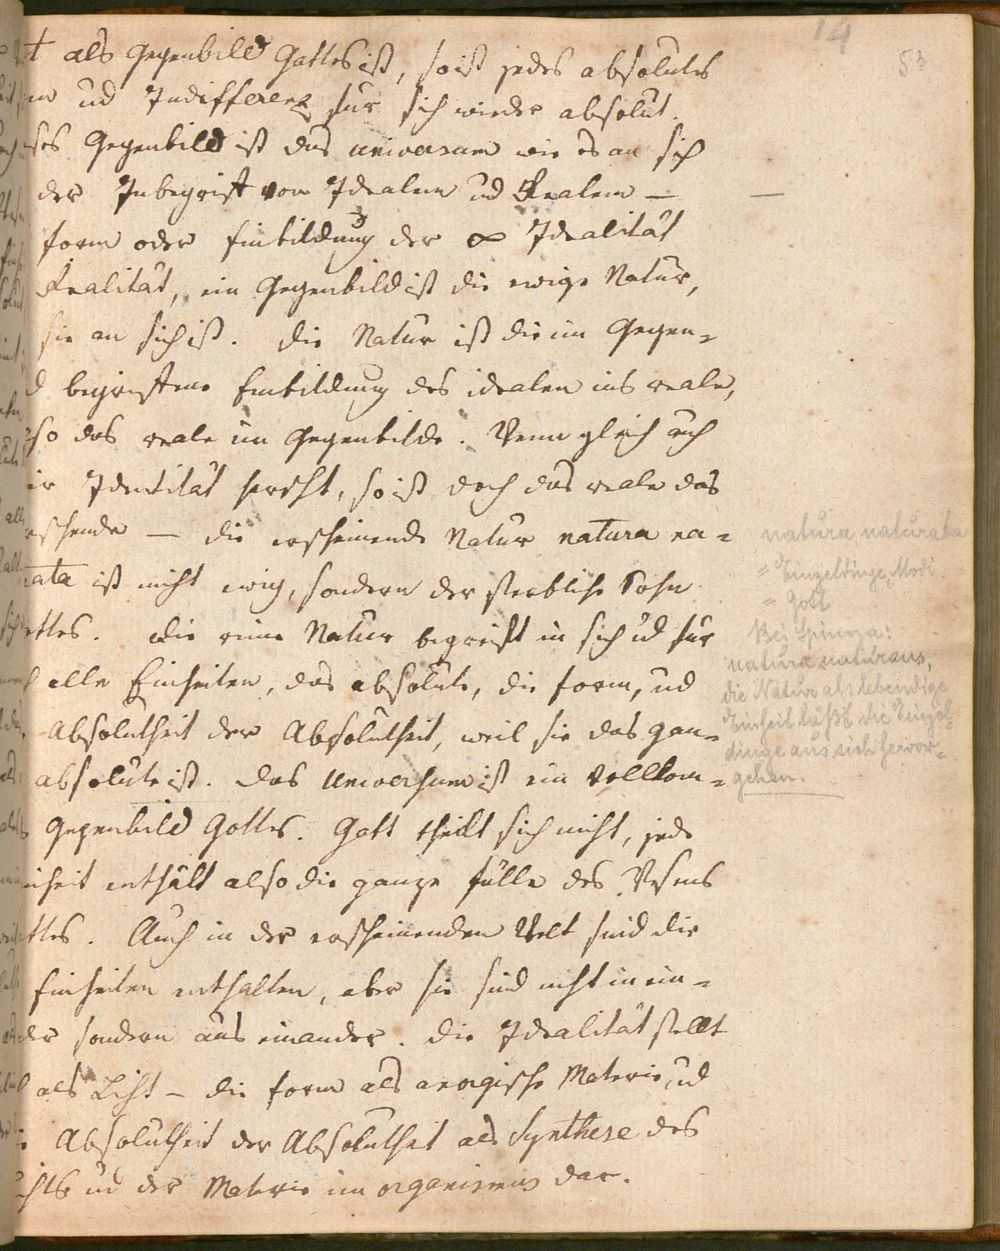 14
53
t als Gegenbild Gottes ist, so ist jedes absolutes
ud Indifferenz für sich wieder absolut.
ses Gegenbild ist das universum wie es an sich
der Inbegriff von Idealem ud Realem —
form oder Einbildung der ∞ Idealität
Realität, ein Gegenbild ist die ewige Natur,
sie an sich ist. Die Natur ist die im Gegen-
d begriffene Einbildung des idealen ins reale,
so das reale im Gegenbilde. Wenn gleich auch
Identität herscht, so ist doch das reale das
rschende — die erscheinende Natur natura na-
rata ist nicht ewig, sondern der sterbliche Sohn
ottes. Die reine Natur begreift in sich ud für
alle Einheiten, das absolute, die form, ud
Absolutheit der Absolutheit, weil sie das gan-
absolute ist. Das Universum ist ein vollkom-
Gegenbild Gottes. Gott theilt sich nicht, jede
nheit enthält also die ganze fülle des Wesens
ottes. Auch in der erscheinenden Welt sind die
Einheiten enthalten, aber sie sind nicht in ein-
der sondern aus einander. Die Idealität stellt
als Licht – die form als anorgische Materie, ud
Absolutheit der Absolutheit als Synthese des
chts ud der Materie im organismus dar.
natura naturata
= Einzeldinge, Modi
= Gott
Bei Spinoza:
natura naturans,
die Natur als lebendige
Einheit läßt die Einzel-
dinge aus sich hervor-
gehen.